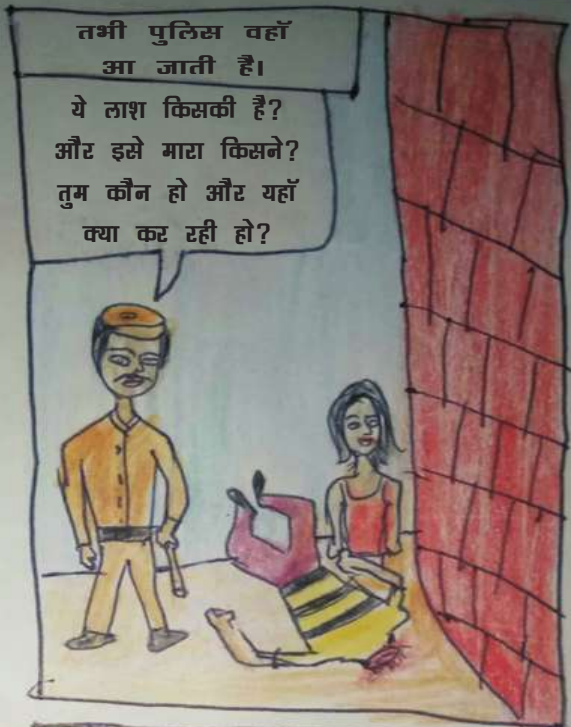 तभी पुलिस वहाॅ
आ जाती है।
ये लाश किसकी है?
और इसे मारा किसने?
तुम कौन हो और यहाॅ
क्या कर रही हो?